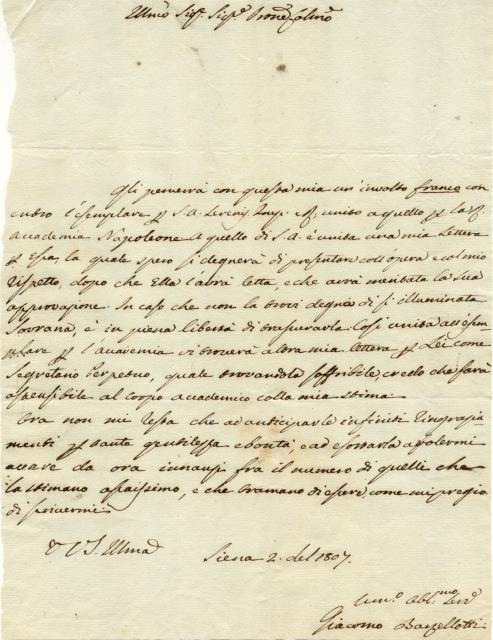 Illmo Sig.r Sig.r Prone Colmo
Gli perverrà con questa mia un'involto franco con
entro l'esemplare p S. A. Seren. Imp. R, unito a quello p la R.
Accademia Napoleone. A quello di S. A. è unita una mia Lettera
p Essa, la quale spero si degnerà di presentare coll'opera e col mio
rispetto, dopo che Ella l'avrà letta, e che avrà meritata la sua
approvazione. In caso che non la trovi degna di sì illuminata
Sovrana, è in piena libertà di trascurarla. Così unita all'esem-
plare p l'accademia vi troverà altra mia lettera p Lei come
Segretario Perpetuo, quale trovandola soffribile, credo che sarà
ostensibile al corpo accademico colla mia stima
Ora non mi resta che ad anticiparle infiniti ringrazia-
menti p tanta gentilezza e bontà; e ad esortarla a volermi
avere da ora innanzi fra il numero di quelli che
la stimano assaissimo, e che bramano di essere, come mi pregio
di scrivermi
D V S. Illma
Siena 2. del 1807.
Um.o Obbl.mo Ser.e
Giacomo Barzellotti